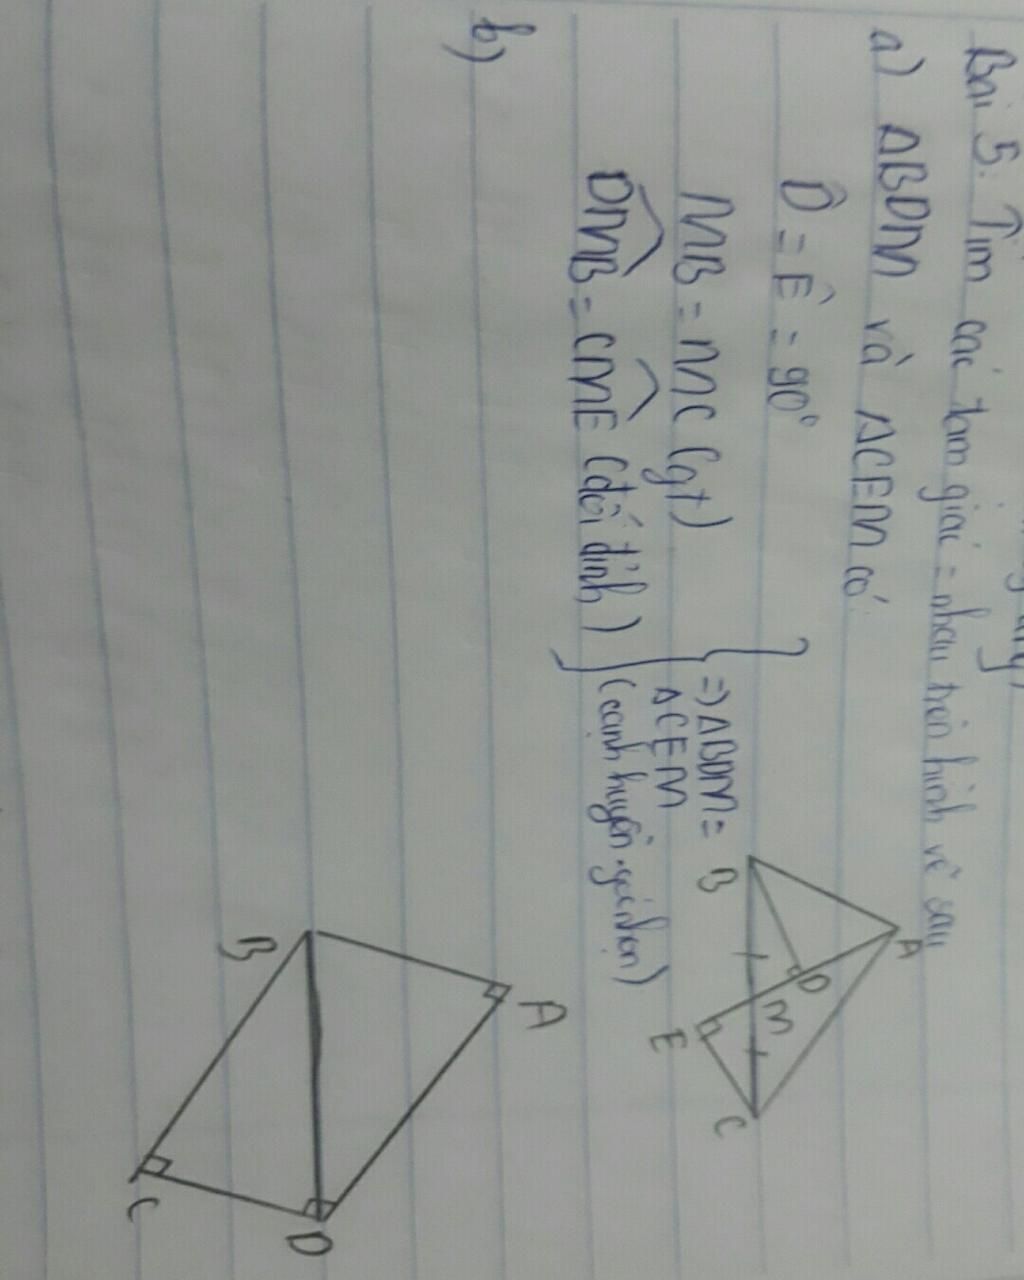 Bài 5: Tìm các tam giác = nhau trên hình vẽ sau
a) ΔBDM và ΔCEM có:
D̂ = Ê = 90°
MB = MC (gt)
DMB = CME (đối đỉnh)
=> ΔBDM =
ΔCEM
(cạnh huyền. góc nhọn)
A
B
D
M
E
C
b)
A
B
C
D